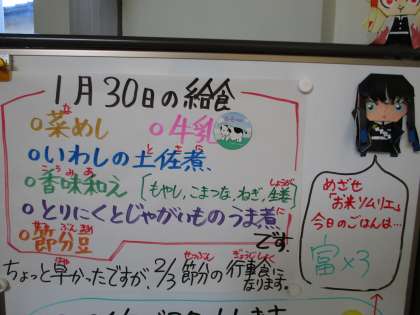 1月30日の給食
○菜めし ○牛乳
○いわしの土佐煮
○香味和え〔もやし、こまつな、ねぎ、生姜〕
○とりにくとじゃがいものうま煮
○節分豆 です。
ちょっと早かったですが、2/3 節分の行事食に
なります。
めざせ
「お米ソムリエ」
今日のごはんは…
富×3